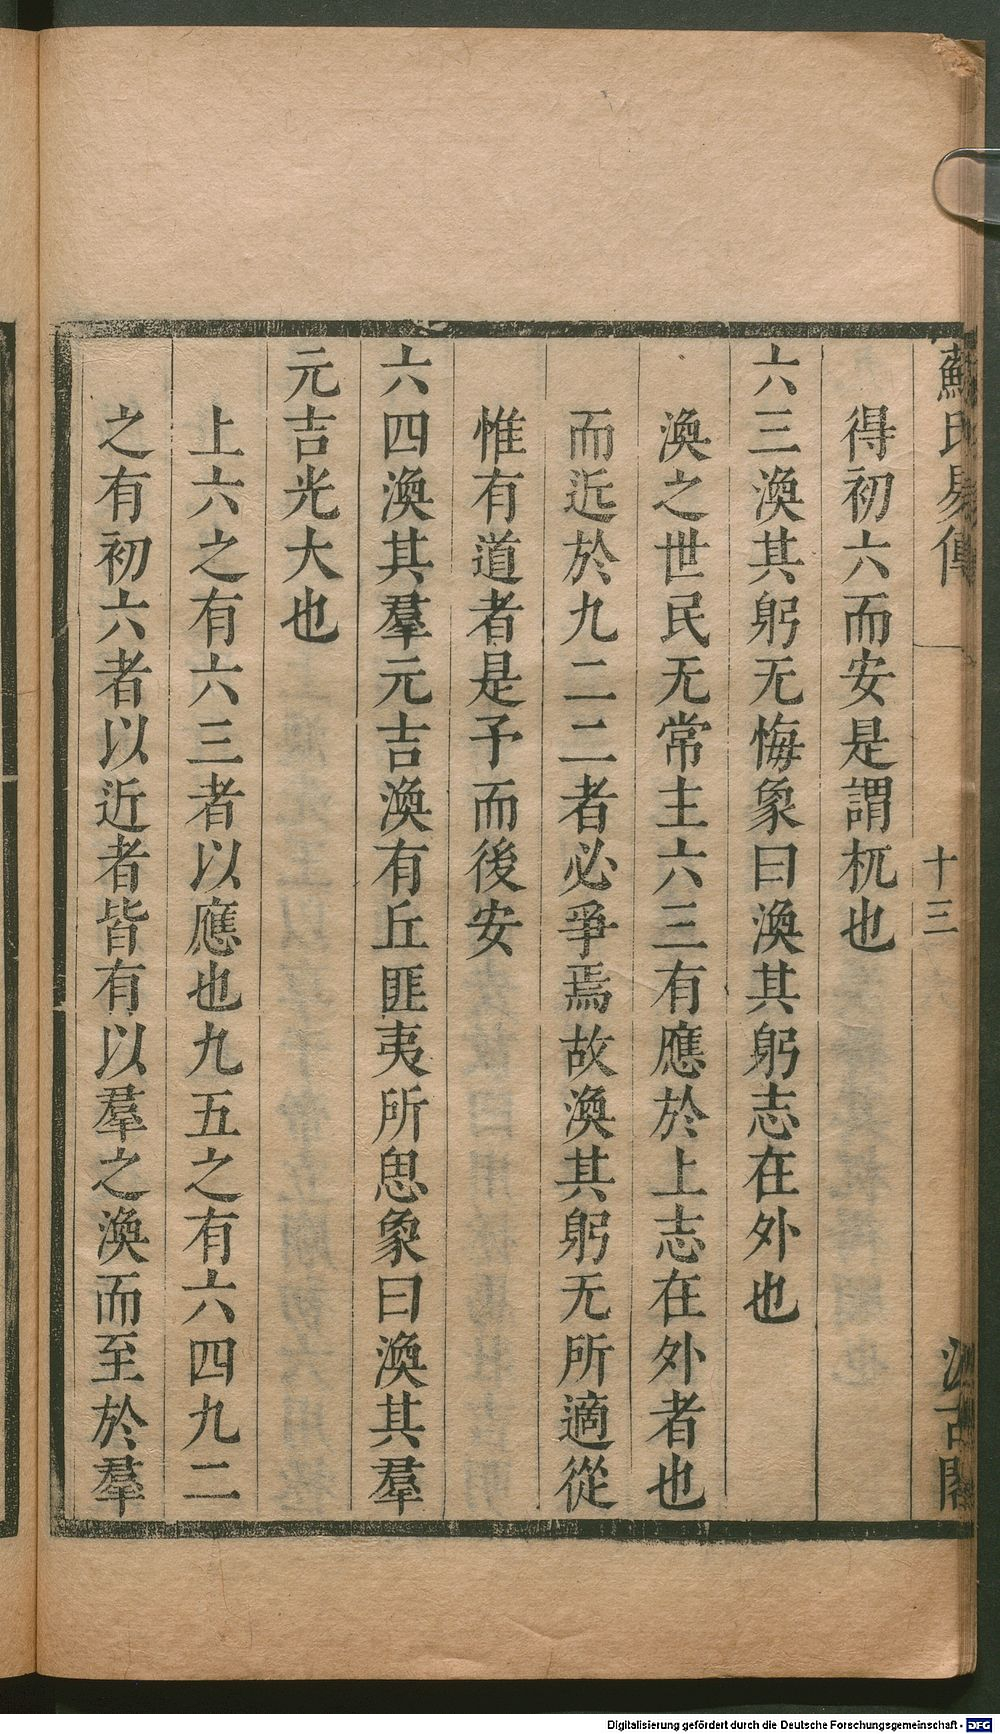 蘇氏易傳
十三
汲古閣
得初六而安是謂杌也
六三渙其躬无悔象曰渙其躬志在外也
渙之世民无常主六三有應於上志在外者也
而近於九二二者必爭焉故渙其躬无所適從
惟有道者是予而後安
六四渙其羣元吉渙有丘匪夷所思象曰渙其羣
元吉光大也
上六之有六三者以應也九五之有六四九二
之有初六者以近者皆有以羣之渙而至於羣
Digitalisierung gefördert durch die Deutsche Forschungsgemeinschaft - DFG